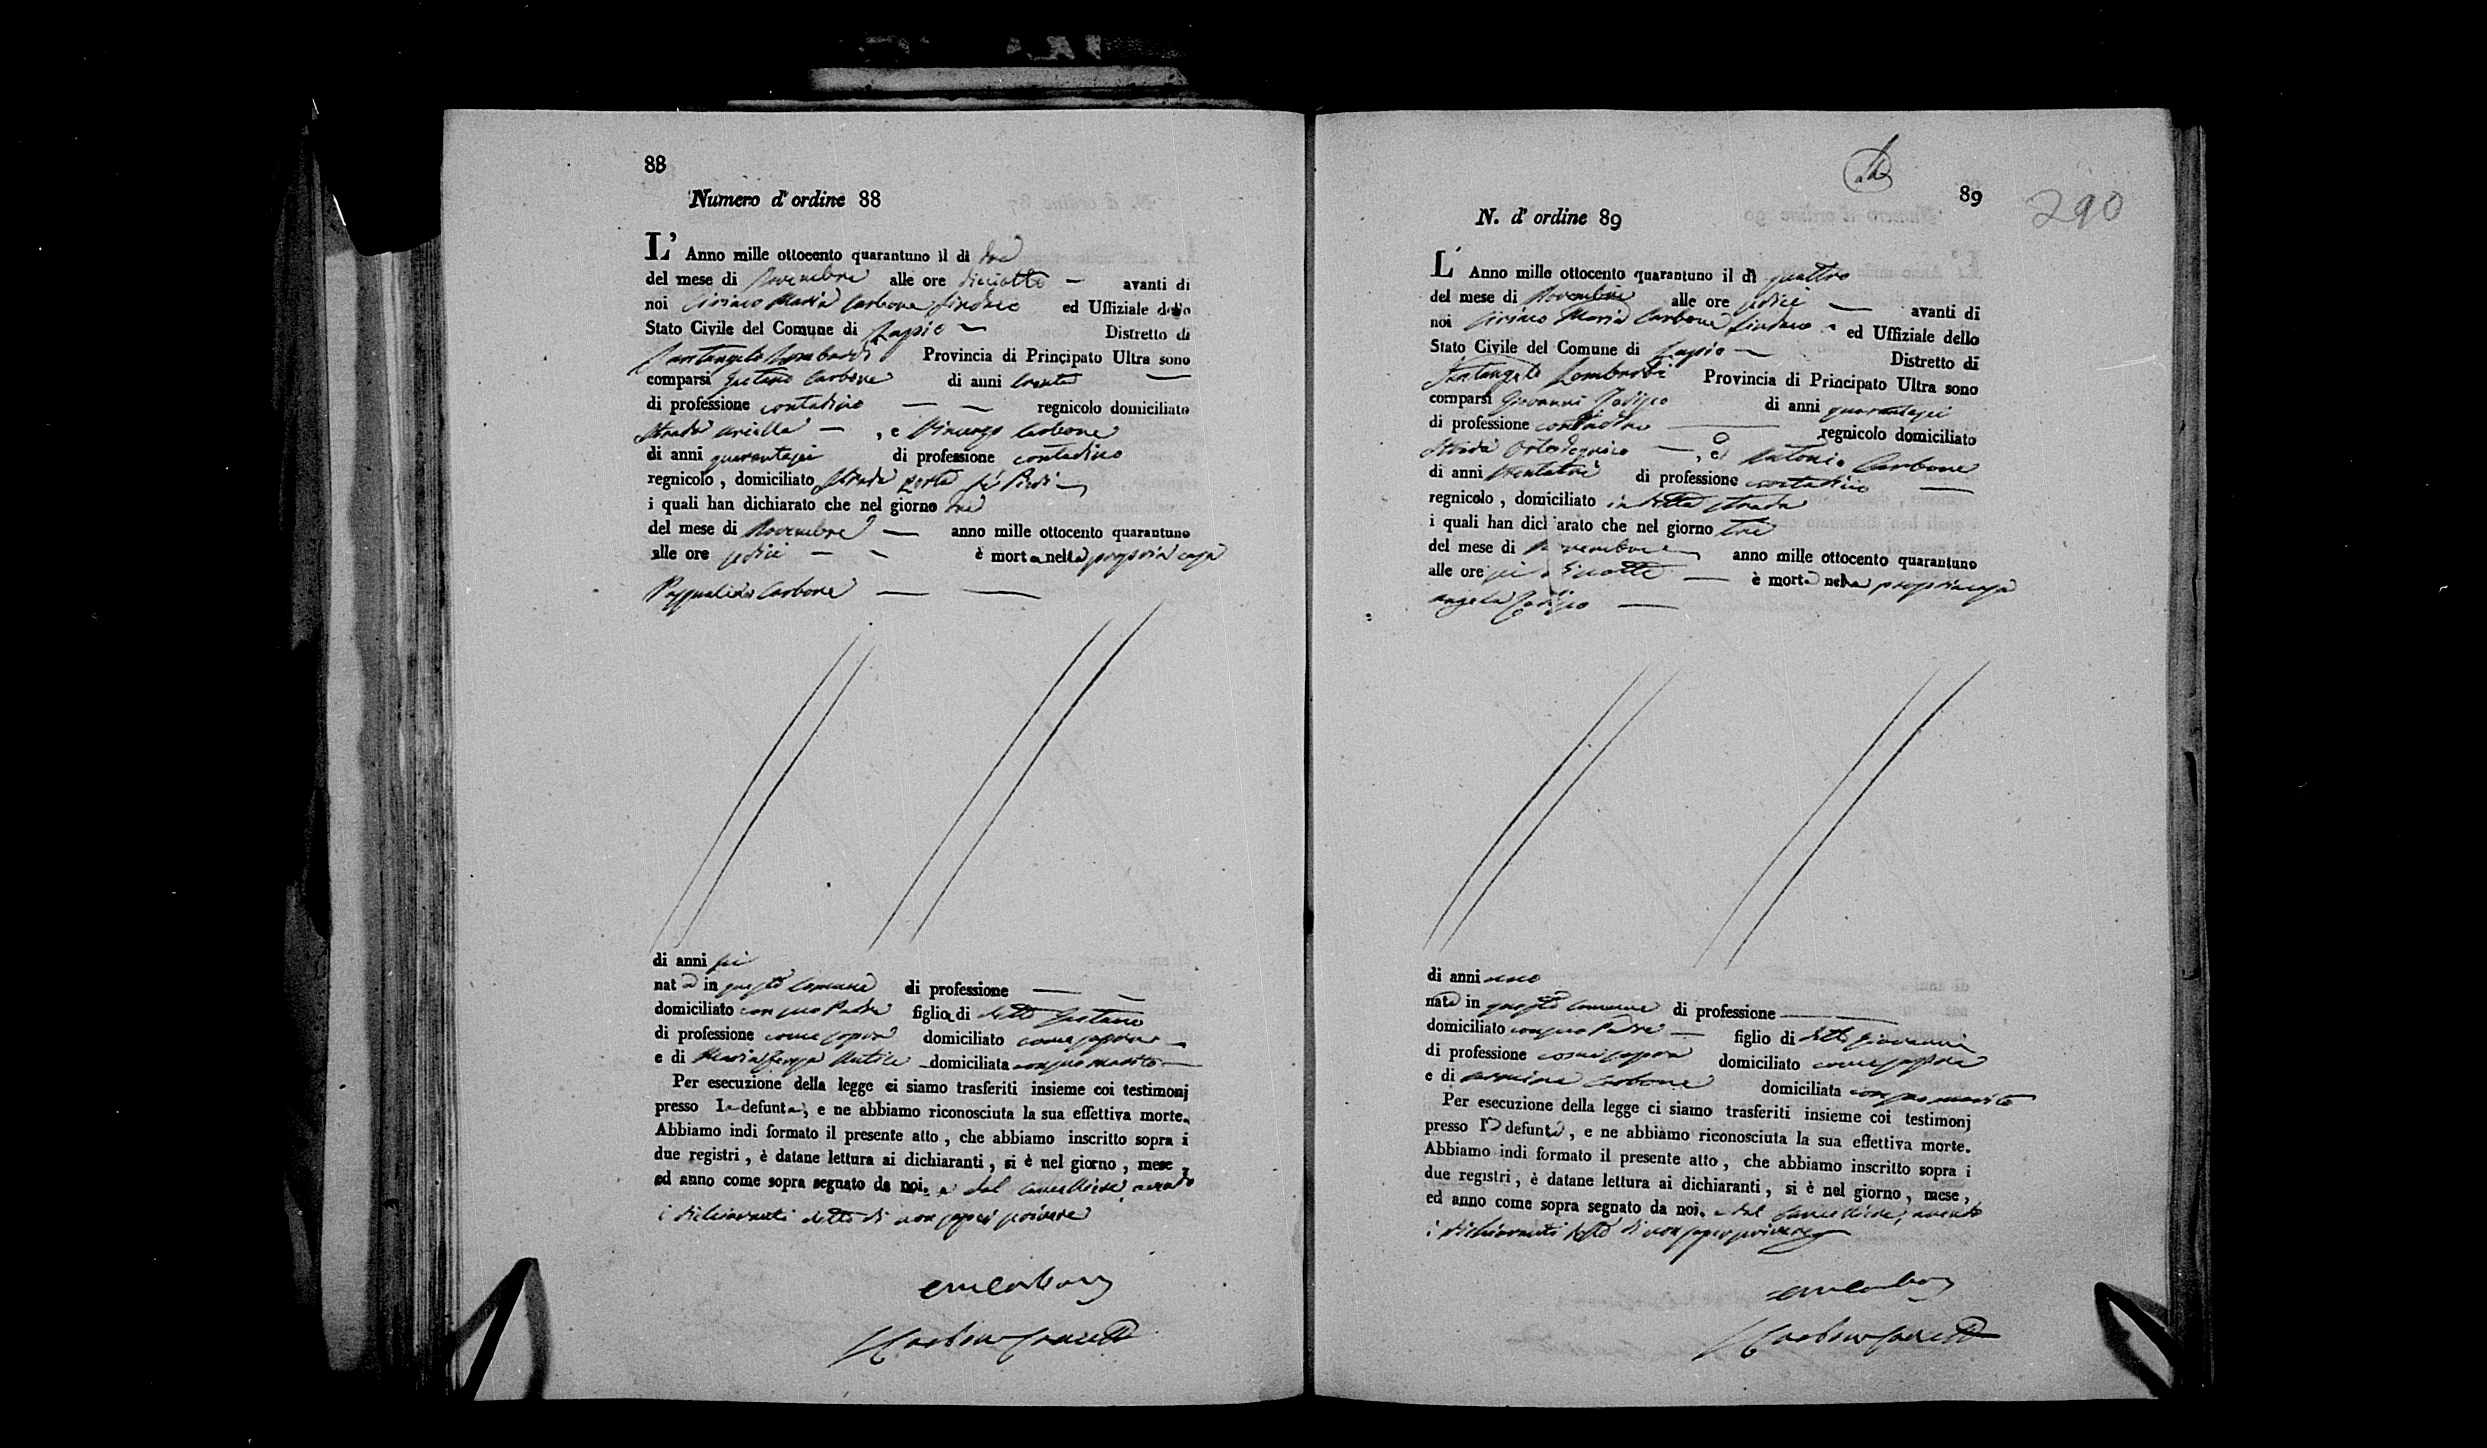 88
Numero d'ordine 88
L' Anno mille ottocento quarantuno il dì tre
del mese di Novembre alle ore diciotto — avanti di
noi Ciriaco Maria Carbone Sindaco ed Uffiziale dello
Stato Civile del Comune di Lapio — Distretto di
Santangelo Lombardi Provincia di Principato Ultra sono
comparsi Gaetano Carbone di anni trenta —
di professione contadino — — regnicolo domiciliato
strada —, e Vincenzo Carbone
di anni quarantasei di professione contadino
regnicolo, domiciliato strada porta —
i quali han dichiarato che nel giorno tre
del mese di Novembre — anno mille ottocento quarantuno
alle ore sedici — - è morta nella propria casa
Carbone — —
di anni sei
nata in questo Comune di professione — —
domiciliato con suo Padre figlia di detto Gaetano
di professione come sopra domiciliato come sopra —
e di Maria — domiciliata con suo marito —
Per esecuzione della legge ci siamo trasferiti insieme coi testimonj
presso la defunta, e ne abbiamo riconosciuta la sua effettiva morte.
Abbiamo indi formato il presente atto, che abbiamo inscritto sopra i
due registri, è datane lettura ai dichiaranti, si è nel giorno, mese,
ed anno come sopra segnato da noi. e dal Cancelliere, avendo
i dichiaranti detto di non saper scrivere
89
290
N. d'ordine 89
L' Anno mille ottocento quarantuno il dì quattro
del mese di Novembre alle ore sedici — avanti di
noi Ciriaco Maria Carbone Sindaco - ed Uffiziale dello
Stato Civile del Comune di Lapio — Distretto di
Santangelo Lombardi Provincia di Principato Ultra sono
comparsi Giovanni di anni quarantasei
di professione contadino — regnicolo domiciliato
strada —, ed Antonio Carbone
di anni trentatre di professione contadino —
regnicolo, domiciliato in detta strada
i quali han dichiarato che nel giorno tre
del mese di Novembre — anno mille ottocento quarantuno
alle ore — è morta nella propria casa
Angela —
di anni uno
nata in questo Comune di professione —
domiciliato con suo Padre — figlio di detto Giovanni
di professione come sopra domiciliato come sopra
e di Carbone domiciliata con suo marito
Per esecuzione della legge ci siamo trasferiti insieme coi testimonj
presso la defunta, e ne abbiamo riconosciuta la sua effettiva morte.
Abbiamo indi formato il presente atto, che abbiamo inscritto sopra i
due registri, è datane lettura ai dichiaranti, si è nel giorno, mese,
ed anno come sopra segnato da noi. e dal Cancelliere, avendo
i dichiaranti detto di non saper scrivere